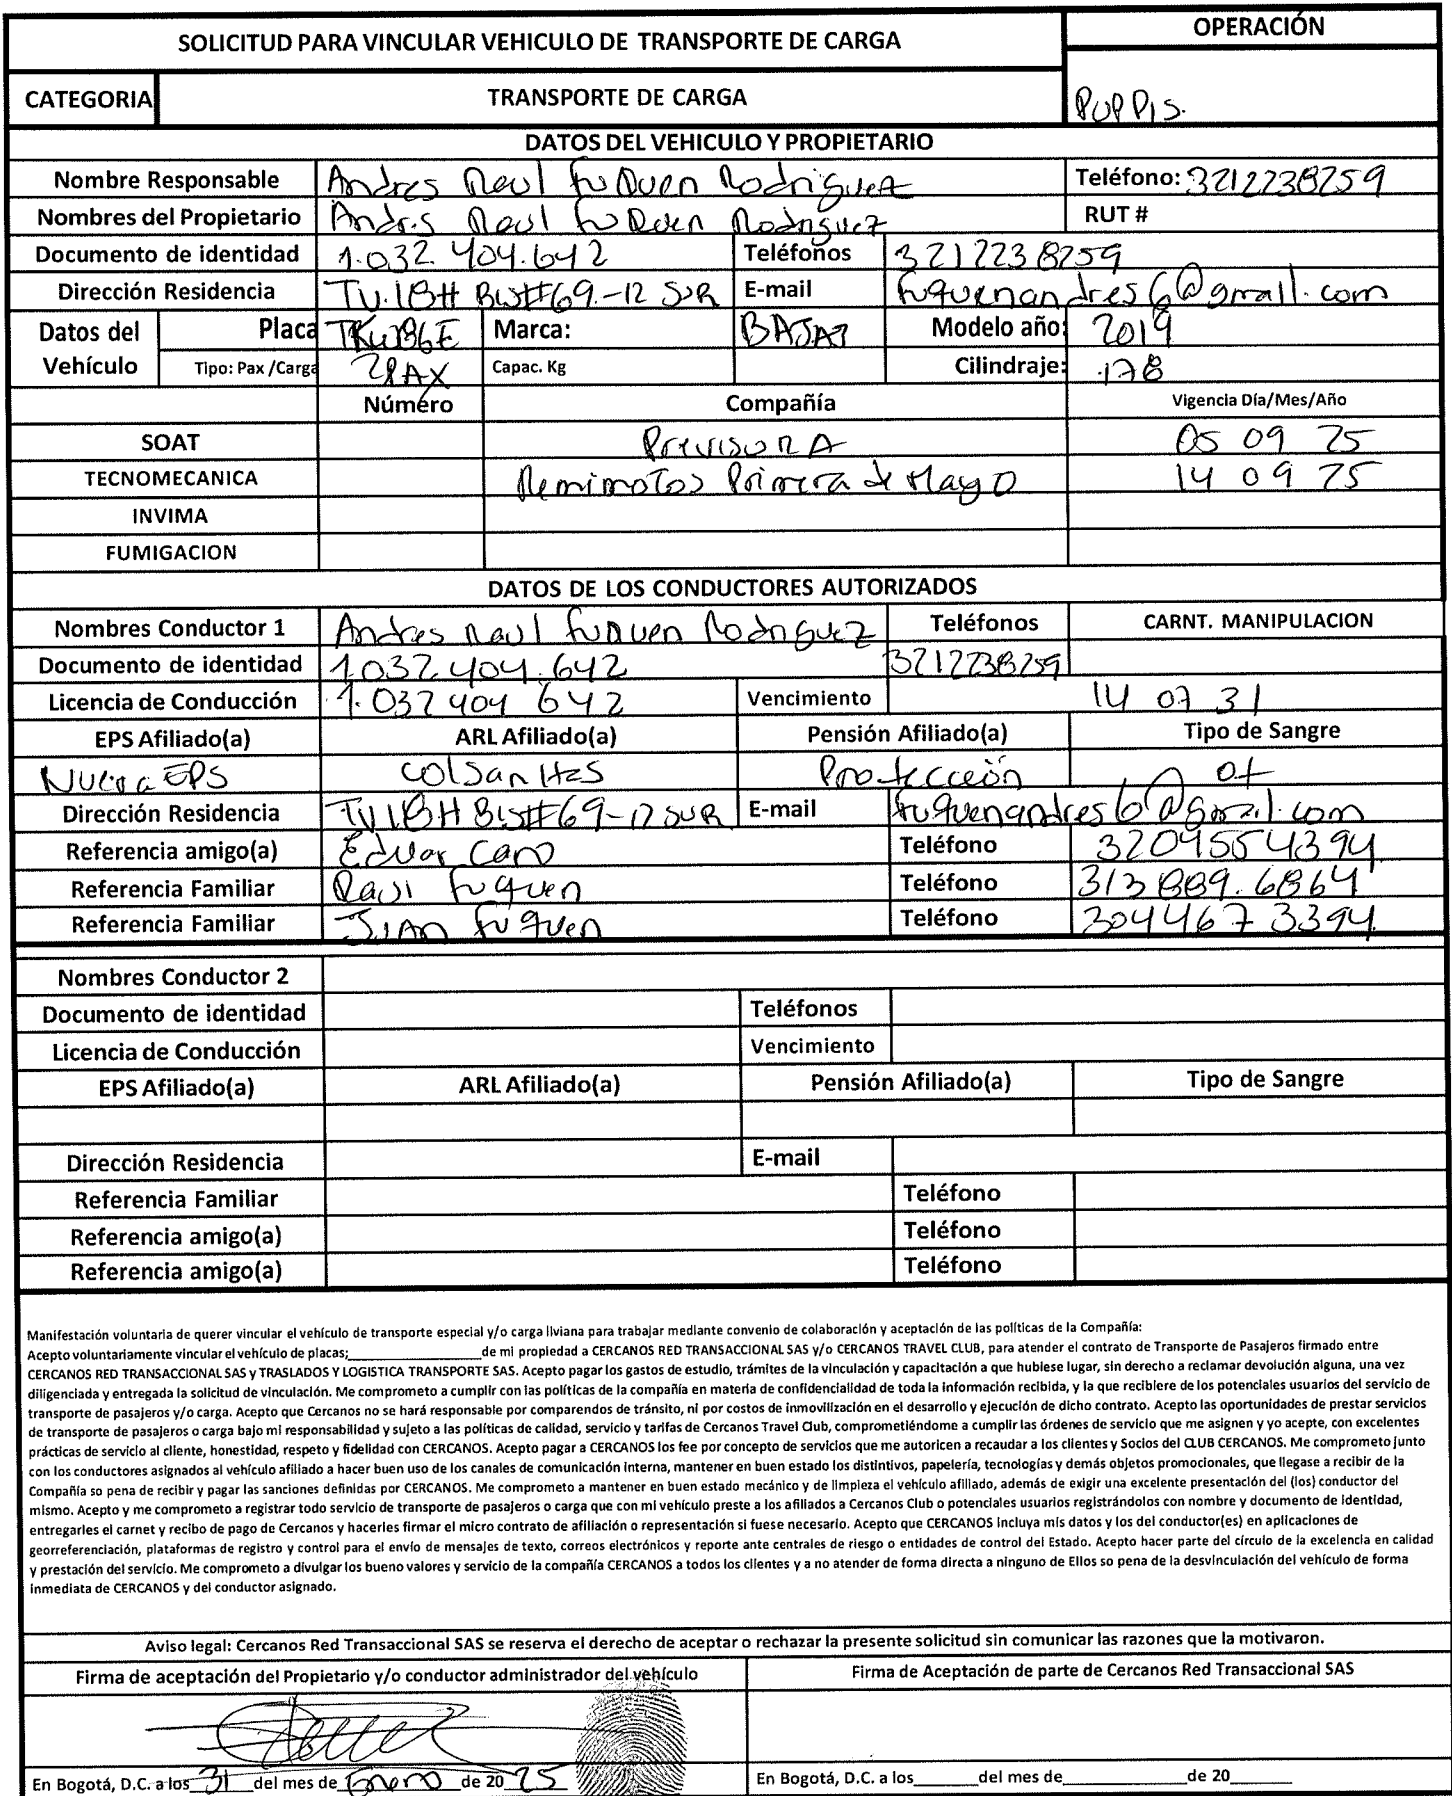 SOLICITUD PARA VINCULAR VEHICULO DE TRANSPORTE DE CARGA
OPERACIÓN
CATEGORIA TRANSPORTE DE CARGA PUPPIS.
DATOS DEL VEHICULO Y PROPIETARIO
Nombre Responsable Andres Raul Fuquen Rodriguez Teléfono: 3212238259
Nombres del Propietario Andres Raul Fuquen Rodriguez RUT #
Documento de identidad 1.032.404.642 Teléfonos 3212238259
Dirección Residencia TV.18H Bis#69-12 SUR E-mail fuquenandres6@gmail.com
Datos del Vehículo Placa Marca: BAJAJ Modelo año: 2019
Tipo: Pax /Carga 2PAX Capac. Kg Cilindraje: 178
Número Compañía Vigencia Día/Mes/Año
SOAT PrevisoRA 05 09 25
TECNOMECANICA Primera de Mayo 14 09 25
INVIMA
FUMIGACION
DATOS DE LOS CONDUCTORES AUTORIZADOS
Nombres Conductor 1 Andres Raul Fuquen Rodriguez Teléfonos CARNT. MANIPULACION
Documento de identidad 1.032.404.642 3212238259
Licencia de Conducción 1.032 404 642 Vencimiento 14 07 31
EPS Afiliado(a) ARL Afiliado(a) Pensión Afiliado(a) Tipo de Sangre
Nueva EPS Colsanitas Protección O+
Dirección Residencia TV18H Bis#69-12 SUR E-mail fuquenandres6@gmail.com
Referencia amigo(a) Eduar Caro Teléfono 32045554394
Referencia Familiar Raul Fuquen Teléfono 313 889.6864
Referencia Familiar Juan Fuquen Teléfono 304467 3394
Nombres Conductor 2
Documento de identidad Teléfonos
Licencia de Conducción Vencimiento
EPS Afiliado(a) ARL Afiliado(a) Pensión Afiliado(a) Tipo de Sangre
Dirección Residencia E-mail
Referencia Familiar Teléfono
Referencia amigo(a) Teléfono
Referencia amigo(a) Teléfono
Manifestación voluntaria de querer vincular el vehículo de transporte especial y/o carga liviana para trabajar mediante convenio de colaboración y aceptación de las políticas de la Compañía:
Acepto voluntariamente vincular el vehículo de placas;____________________de mi propiedad a CERCANOS RED TRANSACCIONAL SAS y/o CERCANOS TRAVEL CLUB, para atender el contrato de Transporte de Pasajeros firmado entre
CERCANOS RED TRANSACCIONAL SAS y TRASLADOS Y LOGISTICA TRANSPORTE SAS. Acepto pagar los gastos de estudio, trámites de la vinculación y capacitación a que hubiese lugar, sin derecho a reclamar devolución alguna, una vez
diligenciada y entregada la solicitud de vinculación. Me comprometo a cumplir con las políticas de la compañía en materia de confidencialidad de toda la información recibida, y la que recibiere de los potenciales usuarios del servicio de
transporte de pasajeros y/o carga. Acepto que Cercanos no se hará responsable por comparendos de tránsito, ni por costos de inmovilización en el desarrollo y ejecución de dicho contrato. Acepto las oportunidades de prestar servicios
de transporte de pasajeros o carga bajo mi responsabilidad y sujeto a las políticas de calidad, servicio y tarifas de Cercanos Travel Club, comprometiéndome a cumplir las órdenes de servicio que me asignen y yo acepte, con excelentes
prácticas de servicio al cliente, honestidad, respeto y fidelidad con CERCANOS. Acepto pagar a CERCANOS los fee por concepto de servicios que me autoricen a recaudar a los clientes y Socios del CLUB CERCANOS. Me comprometo junto
con los conductores asignados al vehículo afiliado a hacer buen uso de los canales de comunicación interna, mantener en buen estado los distintivos, papelería, tecnologías y demás objetos promocionales, que llegase a recibir de la
Compañía so pena de recibir y pagar las sanciones definidas por CERCANOS. Me comprometo a mantener en buen estado mecánico y de limpieza el vehículo afiliado, además de exigir una excelente presentación del (los) conductor del
mismo. Acepto y me comprometo a registrar todo servicio de transporte de pasajeros o carga que con mi vehículo preste a los afiliados a Cercanos Club o potenciales usuarios registrándolos con nombre y documento de identidad,
entregarles el carnet y recibo de pago de Cercanos y hacerles firmar el micro contrato de afiliación o representación si fuese necesario. Acepto que CERCANOS incluya mis datos y los del conductor(es) en aplicaciones de
georreferenciación, plataformas de registro y control para el envío de mensajes de texto, correos electrónicos y reporte ante centrales de riesgo o entidades de control del Estado. Acepto hacer parte del círculo de la excelencia en calidad
y prestación del servicio. Me comprometo a divulgar los bueno valores y servicio de la compañía CERCANOS a todos los clientes y a no atender de forma directa a ninguno de Ellos so pena de la desvinculación del vehículo de forma
inmediata de CERCANOS y del conductor asignado.
Aviso legal: Cercanos Red Transaccional SAS se reserva el derecho de aceptar o rechazar la presente solicitud sin comunicar las razones que la motivaron.
Firma de aceptación del Propietario y/o conductor administrador del vehículo Firma de Aceptación de parte de Cercanos Red Transaccional SAS
En Bogotá, D.C. a los 31 del mes de Enero de 20 25 En Bogotá, D.C. a los_______del mes de_____________de 20_______